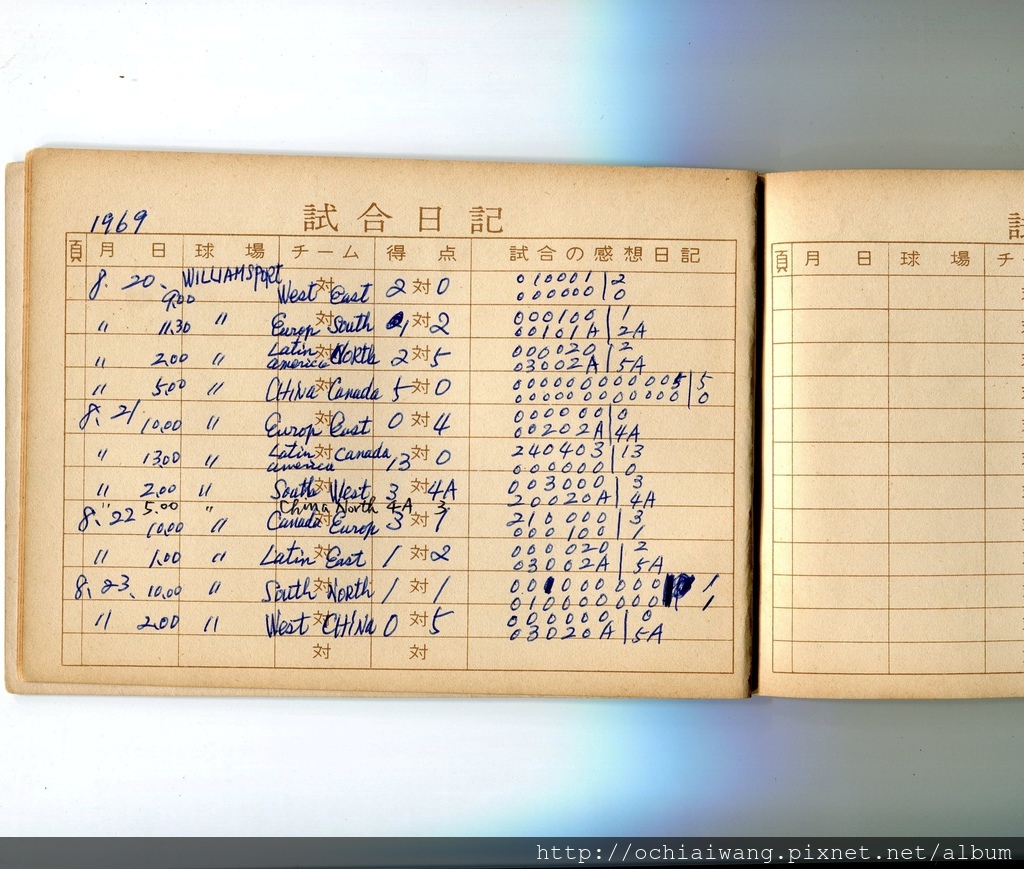 1969 試合日記
頁 月 日 球 場 チーム 得 点 試合の感想日記
8. 20. WILLIAMSPORT 9.00 West 対 East 2 対 0 010001 | 2
000000 | 0
〃 11.30 〃 Europ 対 South 1 対 2 000100 | 1
00101A | 2A
〃 2.00 〃 Latin america 対 North 2 対 5 000020 | 2
03002A | 5A
〃 5.00 〃 CHiNa 対 Canada 5 対 0 000000000005 | 5
000000000000 | 0
8. 21 10.00 〃 Europ 対 East 0 対 4 000000 | 0
00202A | 4A
〃 13.00 〃 Latin america 対 Canada 13 対 0 240403 | 13
000000 | 0
〃 2.00 〃 South 対 West 3 対 4A 003000 | 3
20020A | 4A
〃 5.00 〃 China North 4A 3
8. 22 10.00 〃 Canada 対 Europ 3 対 1 210000 | 3
000100 | 1
〃 1.00 〃 Latin 対 East 1 対 2 000020 | 2
03002A | 5A
8. 23. 10.00 〃 South 対 North 1 対 1 001000000 1
010000000 1
〃 2.00 〃 West 対 CHiNa 0 対 5 000000 | 0
03020A | 5A
対 対
頁 月 日 球 場
http://ochiaiwang.pixnet.net/album